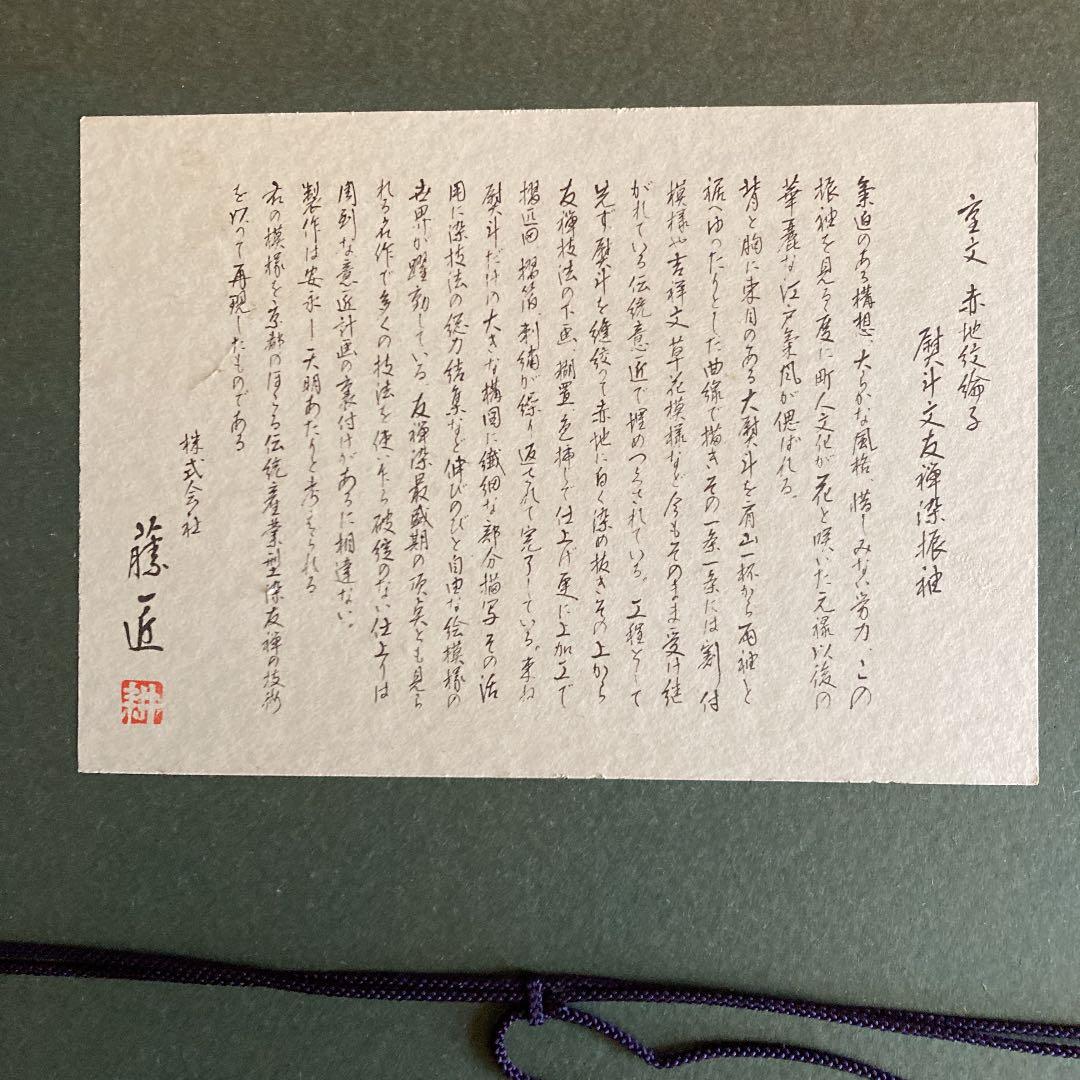 重文 赤地紋綸子
熨斗文友禅染振袖
気迫のある構想、大らかな風格、惜しみない労力、この
振袖を見る度に町人文化が花と咲いた元禄以後の
華麗な江戸気風が偲ばれる。
背と胸に束目のある大熨斗を肩山一杯から両袖と
裾へゆったりとした曲線で描きその一条一条には割付
模様や吉祥文 草花模様など今もそのまま受け継
がれている伝統意匠で埋めつくされている。工程として
先ず熨斗を縫絞って赤地に白く染め抜きその上から
友禅技法の下画、糊置、色挿しで仕上げ更に上加工で
摺疋田 摺箔、刺繍が繰り返されて完了している。束ね
熨斗だけの大きな構図に繊細な部分描写 その活
用に染技法の総力結集など伸びのびと自由な絵模様の
世界が躍動している 友禅染最盛期の頂点とも見ら
れる名作で多くの技法を使い乍ら破綻のない仕上りは
周到な意匠計画の裏付けがあるに相違ない。
製作は安永ー天明あたりと考えられる
右の模様を京都のほこる伝統産業型染友禅の技術
を以って再現したものである
株式会社
藤匠
耕